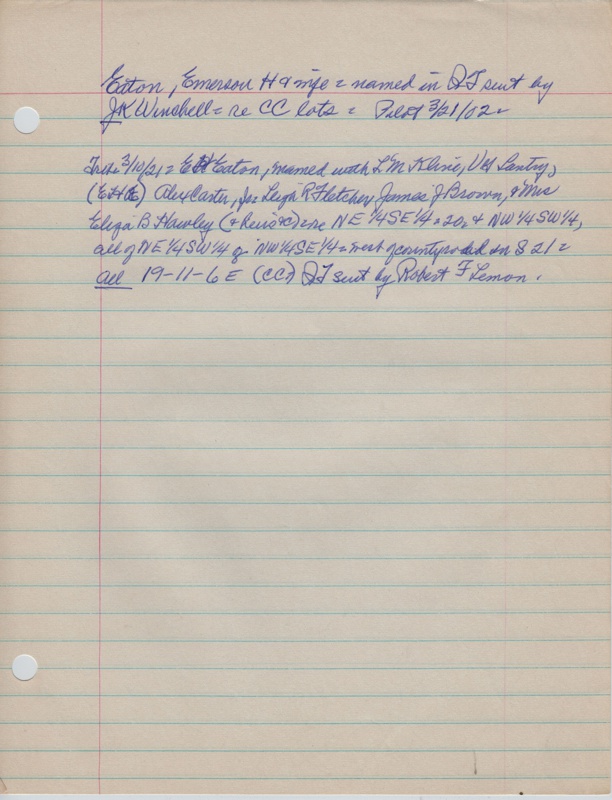 Eaton, Emerson H & wife = named in QT suit by
JK Winchell = re CC lots = Pilot 3/21/02 =
Trib 3/10/21 = EH Eaton, named with L M Kline, VH Lantry,
(EHE) Alex Carter, Leigh R Fletcher, James J Brown, & Mrs
Eliza B Hawley (& heirs &c) = re NE 1/4 SE 1/4 = 20, & NW 1/4 SW 1/4,
all of NE 1/4 SW 1/4 & NW 1/4 SE 1/4 = west of county road on S 21 =
all 19-11-6 E (CC) QT suit by Robert F Lemon.